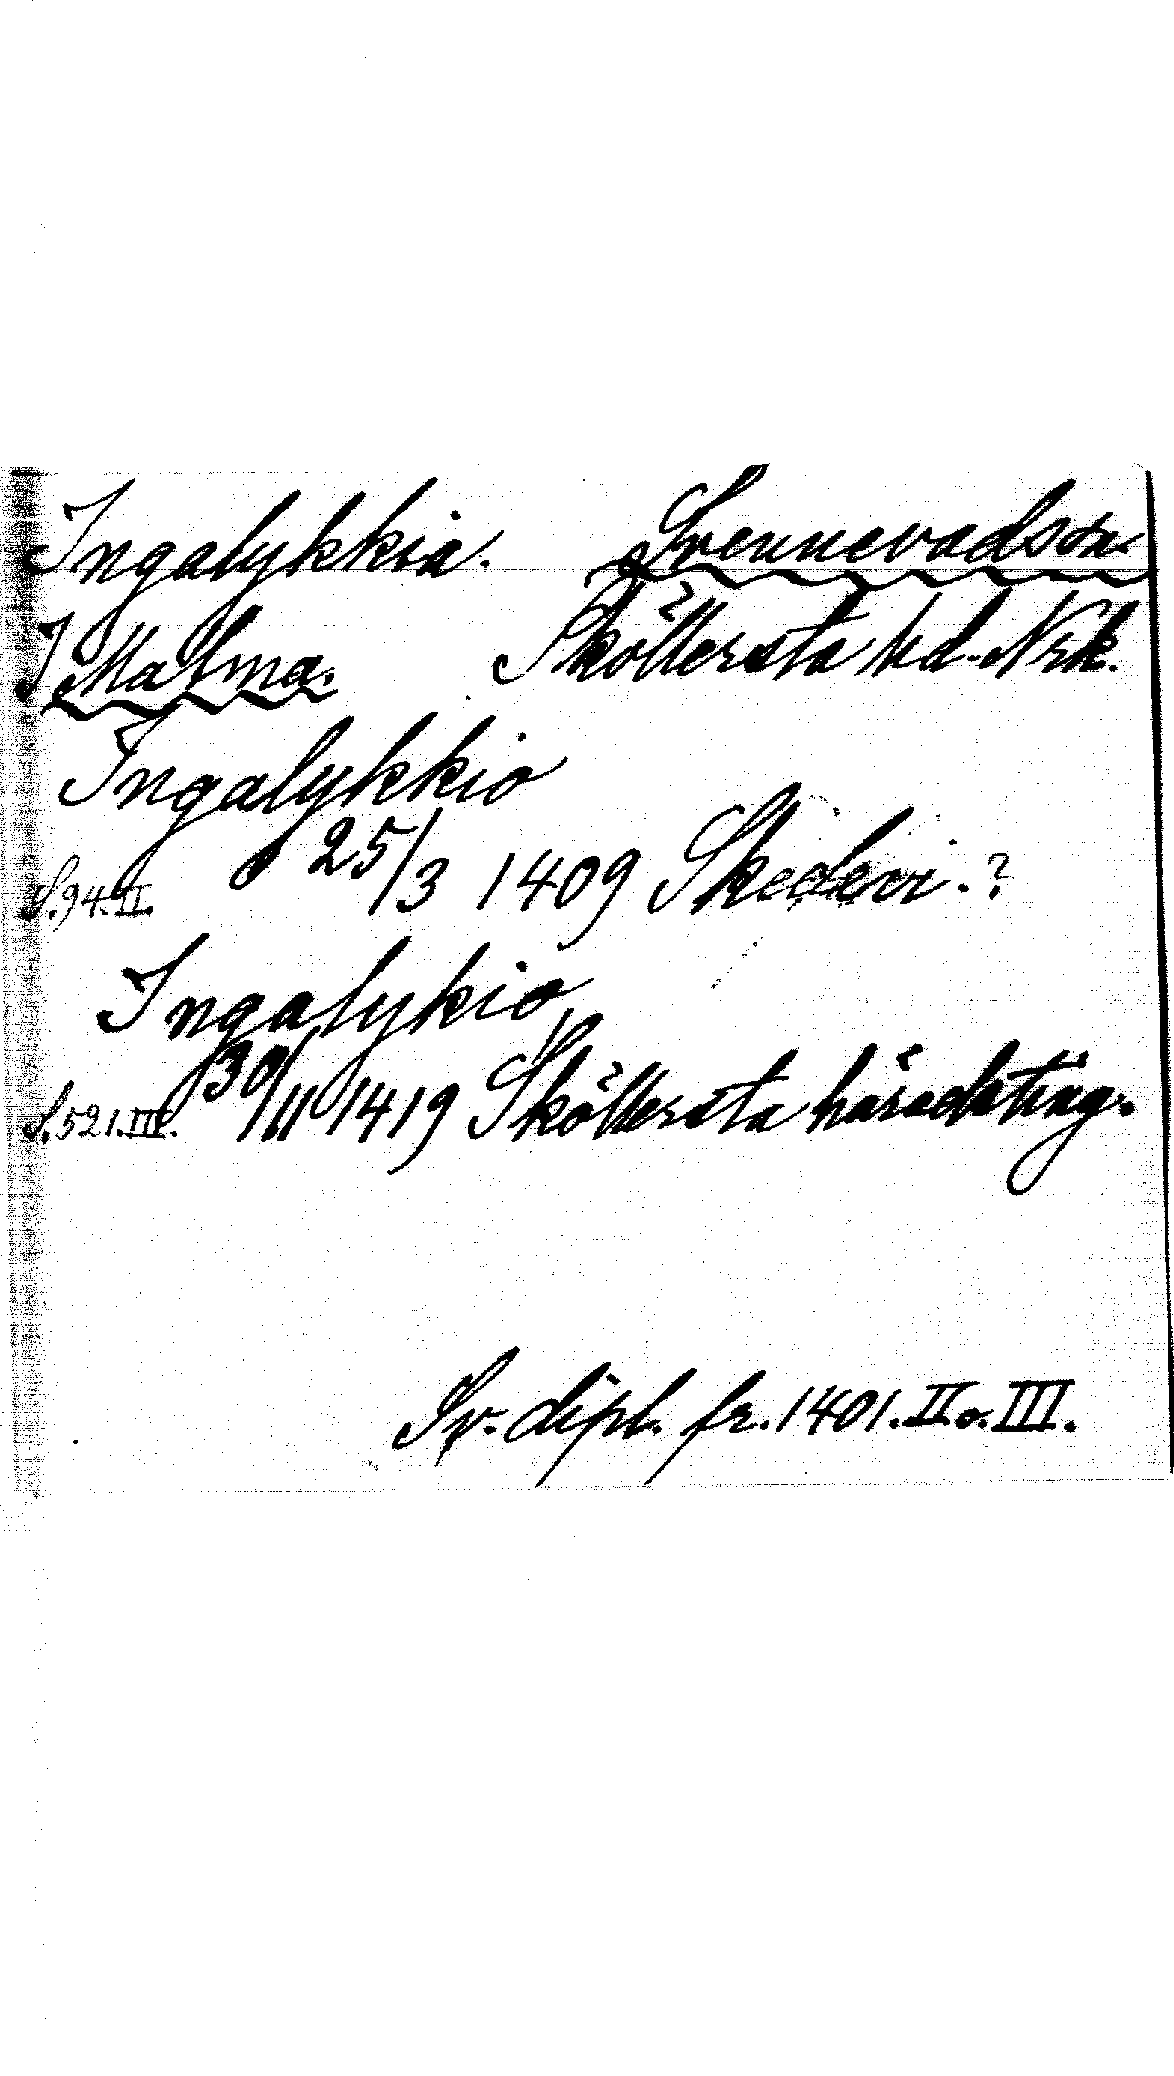 Ingalykkia. Svennevadssn.
I Malma. Sköllersta hd. Nrk.
Ingalykkio
S. 94. II. 25/3 1409 Skedevi. ?
Ingalykio
S. 521. III. 30/11 1419 Sköllersta häradsting.
Sv. dipl. fr. 1401. II o. III.